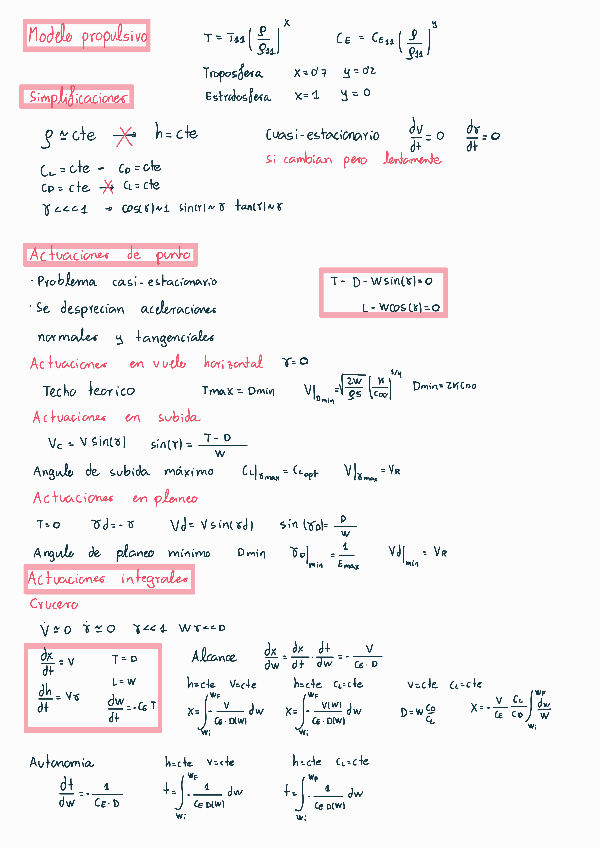 Modelo propulsivo T = T₁₁ (ρ/ρ₁₁)^x C_E = C_E₁₁ (ρ/ρ₁₁)^y
Troposfera x=0'7 y=0'2
Simplificaciones Estratosfera x=1 y=0
ρ ≃ cte → h = cte Cuasi-estacionario dv/dt = 0 dγ/dt = 0
si cambian pero lentamente
C_L = cte → C_D = cte
C_D = cte → C_L = cte
γ <<< 1 → cos(γ)≈1 sin(γ)≈γ tan(γ)≈γ
Actuaciones de punto
· Problema casi-estacionario T - D - W sin(γ) = 0
· Se desprecian aceleraciones L - W cos(γ) = 0
normales y tangenciales
Actuaciones en vuelo horizontal γ=0
Techo teorico Tmax = Dmin V|Dmin = √(2W/ρS) (K/C_D0)^1/4 Dmin = 2KC_D0
Actuaciones en subida
Vc = V sin(γ) sin(γ) = (T-D)/W
Angulo de subida máximo C_L|γmax = C_Lopt V|γmax = V_R
Actuaciones en planeo
T=0 γd = -γ Vd = V sin(γd) sin(γD) = D/W
Angulo de planeo mínimo Dmin γD|min = 1/Emax Vd|min = V_R
Actuaciones integrales
Crucero
V̇ ≃ 0 γ̇ ≃ 0 γ<<1 Wγ<<D
dx/dt = V T = D Alcance dx/dw = dx/dt · dt/dw = - V/(C_E·D)
L = W h=cte V=cte h=cte C_L=cte V=cte C_L=cte
dh/dt = Vγ dw/dt = -C_E T x = ∫_Wi^WF - V/(C_E·D(W)) dw x = ∫_Wi^WF - V(W)/(C_E·D(W)) dw D = W C_D/C_L x = - V/C_E C_L/C_D ∫_Wi^WF dw/W
Autonomia h=cte V=cte h=cte C_L=cte
dt/dw = - 1/(C_E·D) t = ∫_Wi^WF - 1/(C_E D(W)) dw t = ∫_Wi^WF - 1/(C_E D(W)) dw